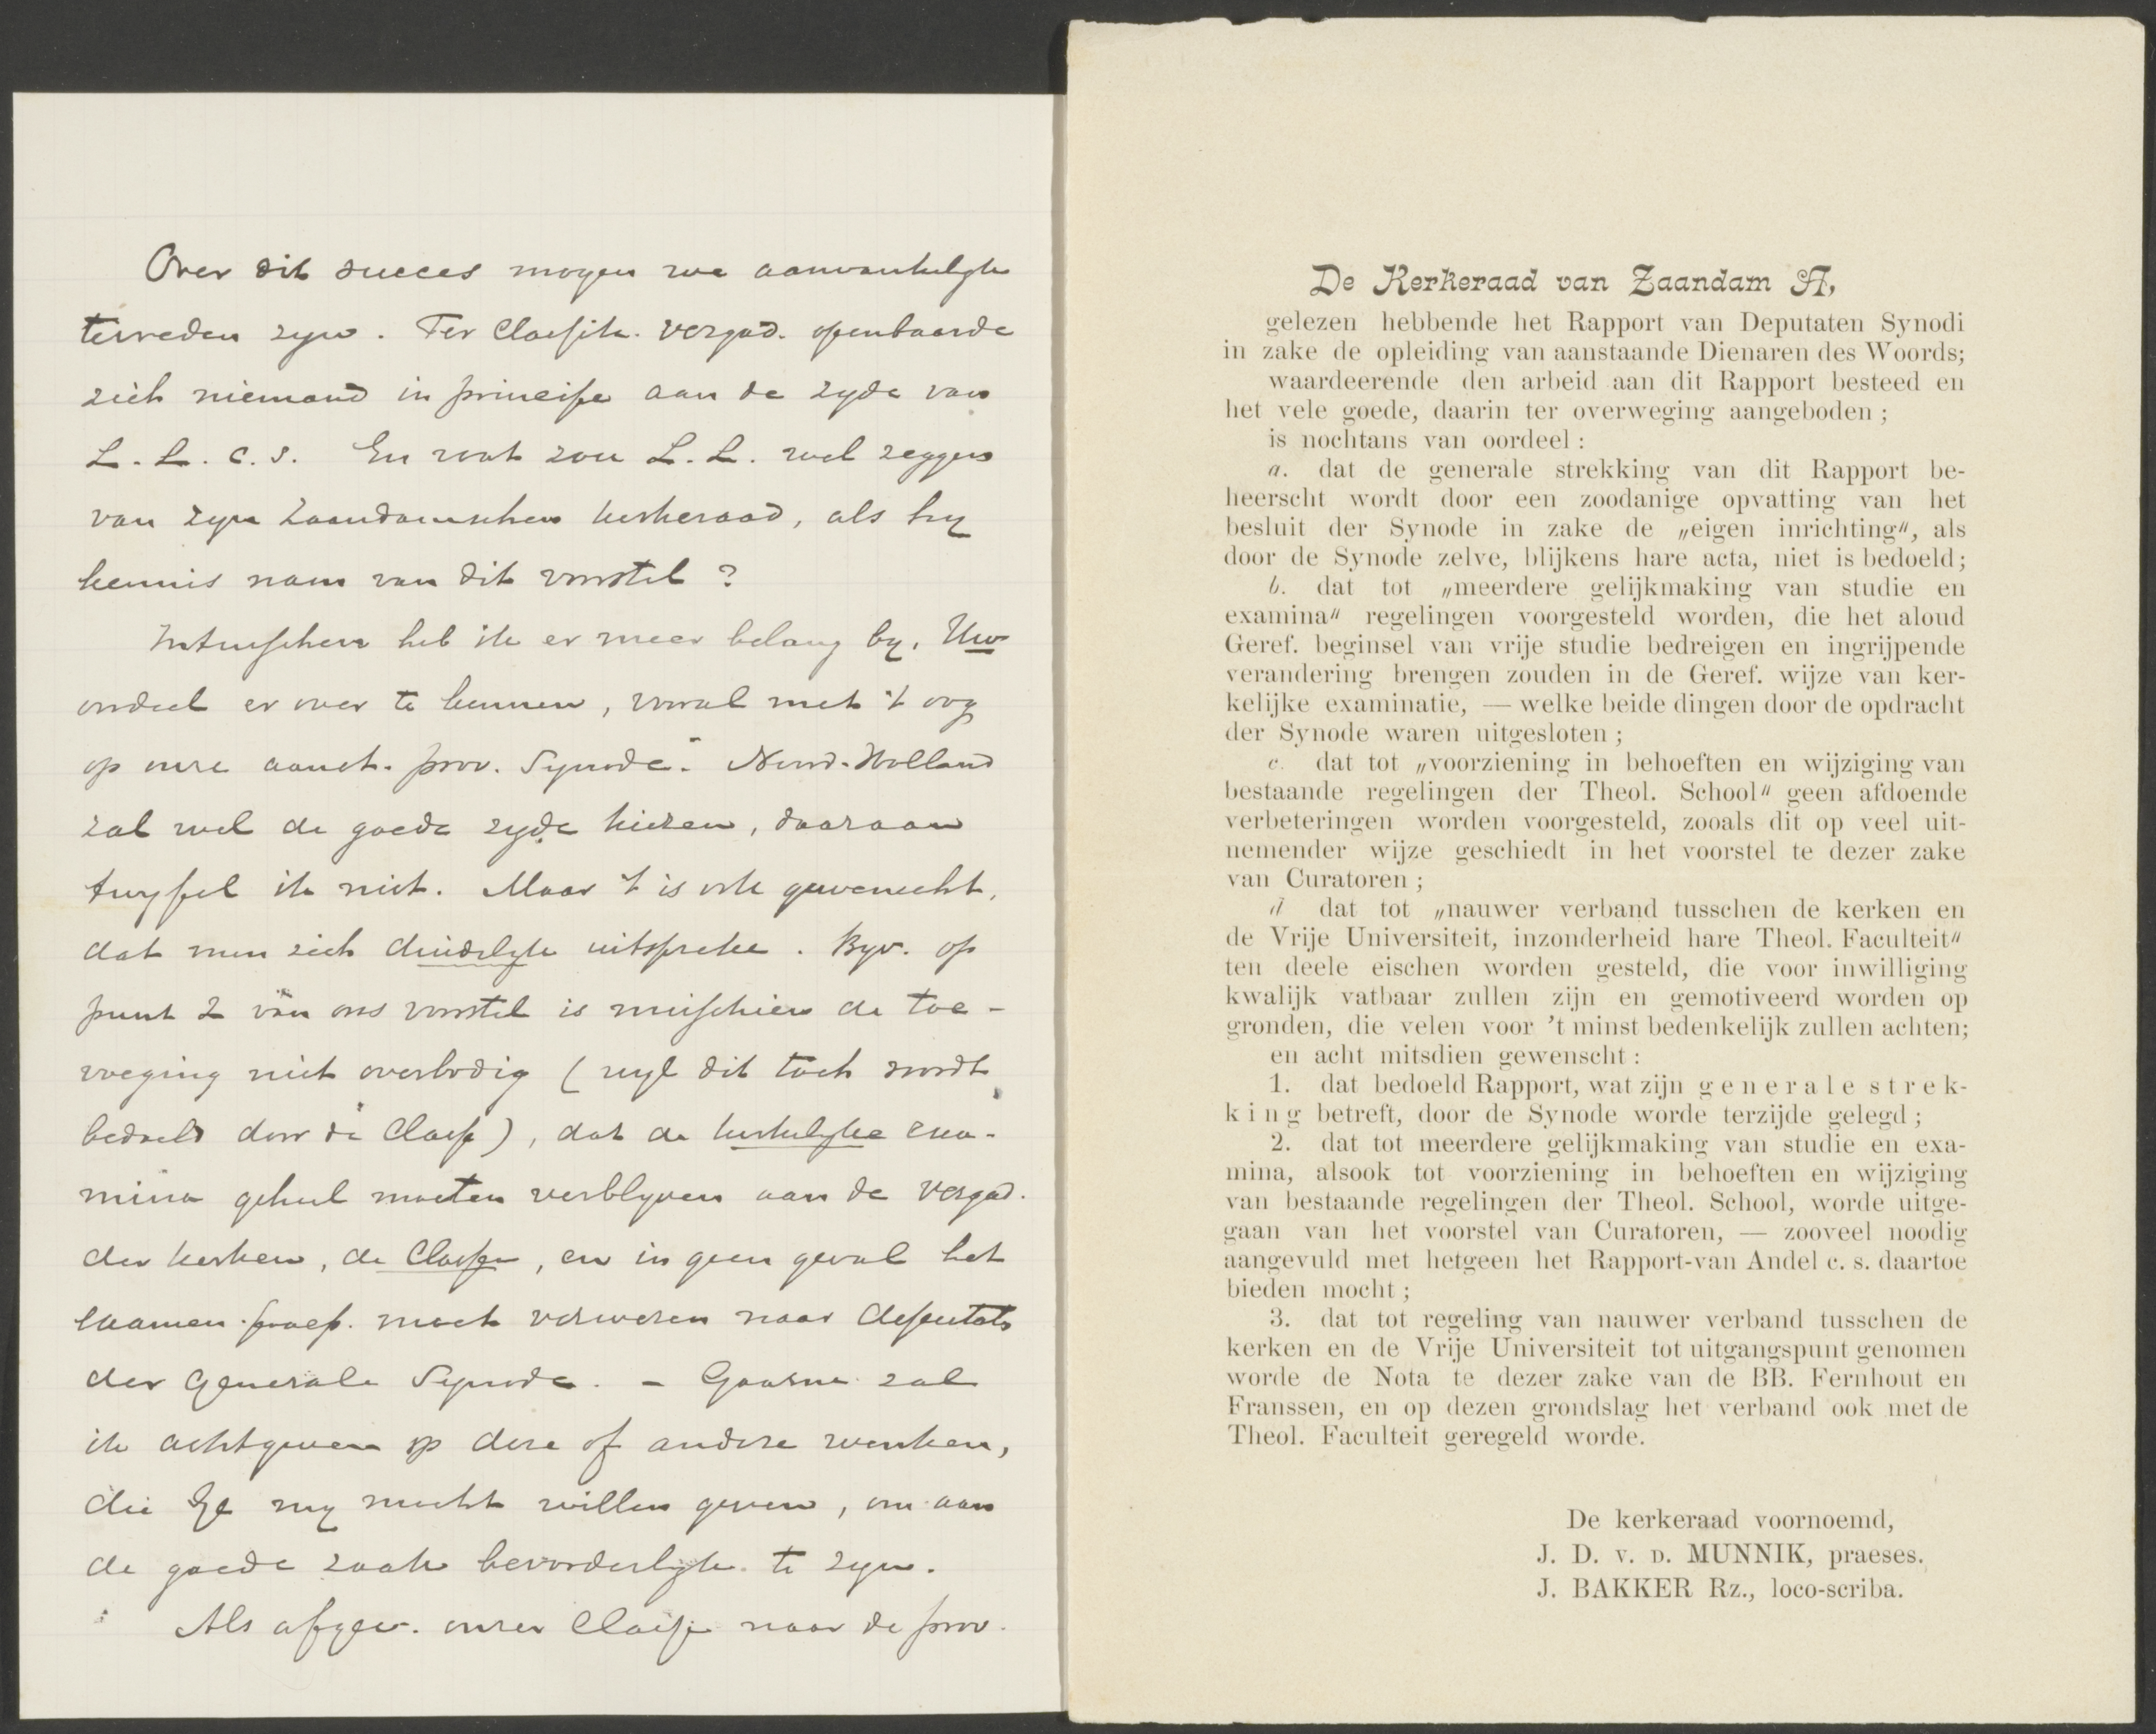 Over dit succes mogen we aanvankelijk
tevreden zijn. Ter Classik. vergad. openbaarde
zich niemand in principe aan de zijde van
L. L. c. s. En wat zou L. L. wel zeggen
van zijn Zaandamschen kerkeraad, als hij
kennis nam van dit voorstel?
Intusschen heb ik er meer belang bij, Uw
oordeel er over te kennen, vooral met 't oog
op onze aanst. prov. Synode. Noord-Holland
zal wel de goede zijde kiezen, daaraan
twijfel ik niet. Maar 't is ook gewenscht,
dat men zich duidelijk uitspreke. Bijv. op
punt 2 van ons voorstel is misschien de toe-
voeging niet overbodig (wijl dit toch wordt
bedoeld door de Classe), dat de kerkelijke exa-
mina geheel moeten verblijven aan de vergad.
der kerken, de Classen, en in geen geval het
examen-praep. moet verwezen naar deputaten
der Generale Synode. - Gaarne zal
ik achtgeven op deze of andere wenken,
die Ge mij mocht willen geven, om aan
de goede zaak bevorderlijk te zijn.
Als afgev. onzer Classe naar de prov.
De Kerkeraad van Zaandam A,
gelezen hebbende het Rapport van Deputaten Synodi
in zake de opleiding van aanstaande Dienaren des Woords;
waardeerende den arbeid aan dit Rapport besteed en
het vele goede, daarin ter overweging aangeboden;
is nochtans van oordeel:
a. dat de generale strekking van dit Rapport be-
heerscht wordt door een zoodanige opvatting van het
besluit der Synode in zake de „eigen inrichting", als
door de Synode zelve, blijkens hare acta, niet is bedoeld;
b. dat tot „meerdere gelijkmaking van studie en
examina" regelingen voorgesteld worden, die het aloud
Geref. beginsel van vrije studie bedreigen en ingrijpende
verandering brengen zouden in de Geref. wijze van ker-
kelijke examinatie, — welke beide dingen door de opdracht
der Synode waren uitgesloten;
c. dat tot „voorziening in behoeften en wijziging van
bestaande regelingen der Theol. School" geen afdoende
verbeteringen worden voorgesteld, zooals dit op veel uit-
nemender wijze geschiedt in het voorstel te dezer zake
van Curatoren;
d dat tot „nauwer verband tusschen de kerken en
de Vrije Universiteit, inzonderheid hare Theol. Faculteit"
ten deele eischen worden gesteld, die voor inwilliging
kwalijk vatbaar zullen zijn en gemotiveerd worden op
gronden, die velen voor 't minst bedenkelijk zullen achten;
en acht mitsdien gewenscht:
1. dat bedoeld Rapport, wat zijn generale strek-
king betreft, door de Synode worde terzijde gelegd;
2. dat tot meerdere gelijkmaking van studie en exa-
mina, alsook tot voorziening in behoeften en wijziging
van bestaande regelingen der Theol. School, worde uitge-
gaan van het voorstel van Curatoren, — zooveel noodig
aangevuld met hetgeen het Rapport-van Andel c. s. daartoe
bieden mocht;
3. dat tot regeling van nauwer verband tusschen de
kerken en de Vrije Universiteit tot uitgangspunt genomen
worde de Nota te dezer zake van de BB. Fernhout en
Franssen, en op dezen grondslag het verband ook met de
Theol. Faculteit geregeld worde.
De kerkeraad voornoemd,
J. D. v. D. MUNNIK, praeses.
J. BAKKER Rz., loco-scriba.